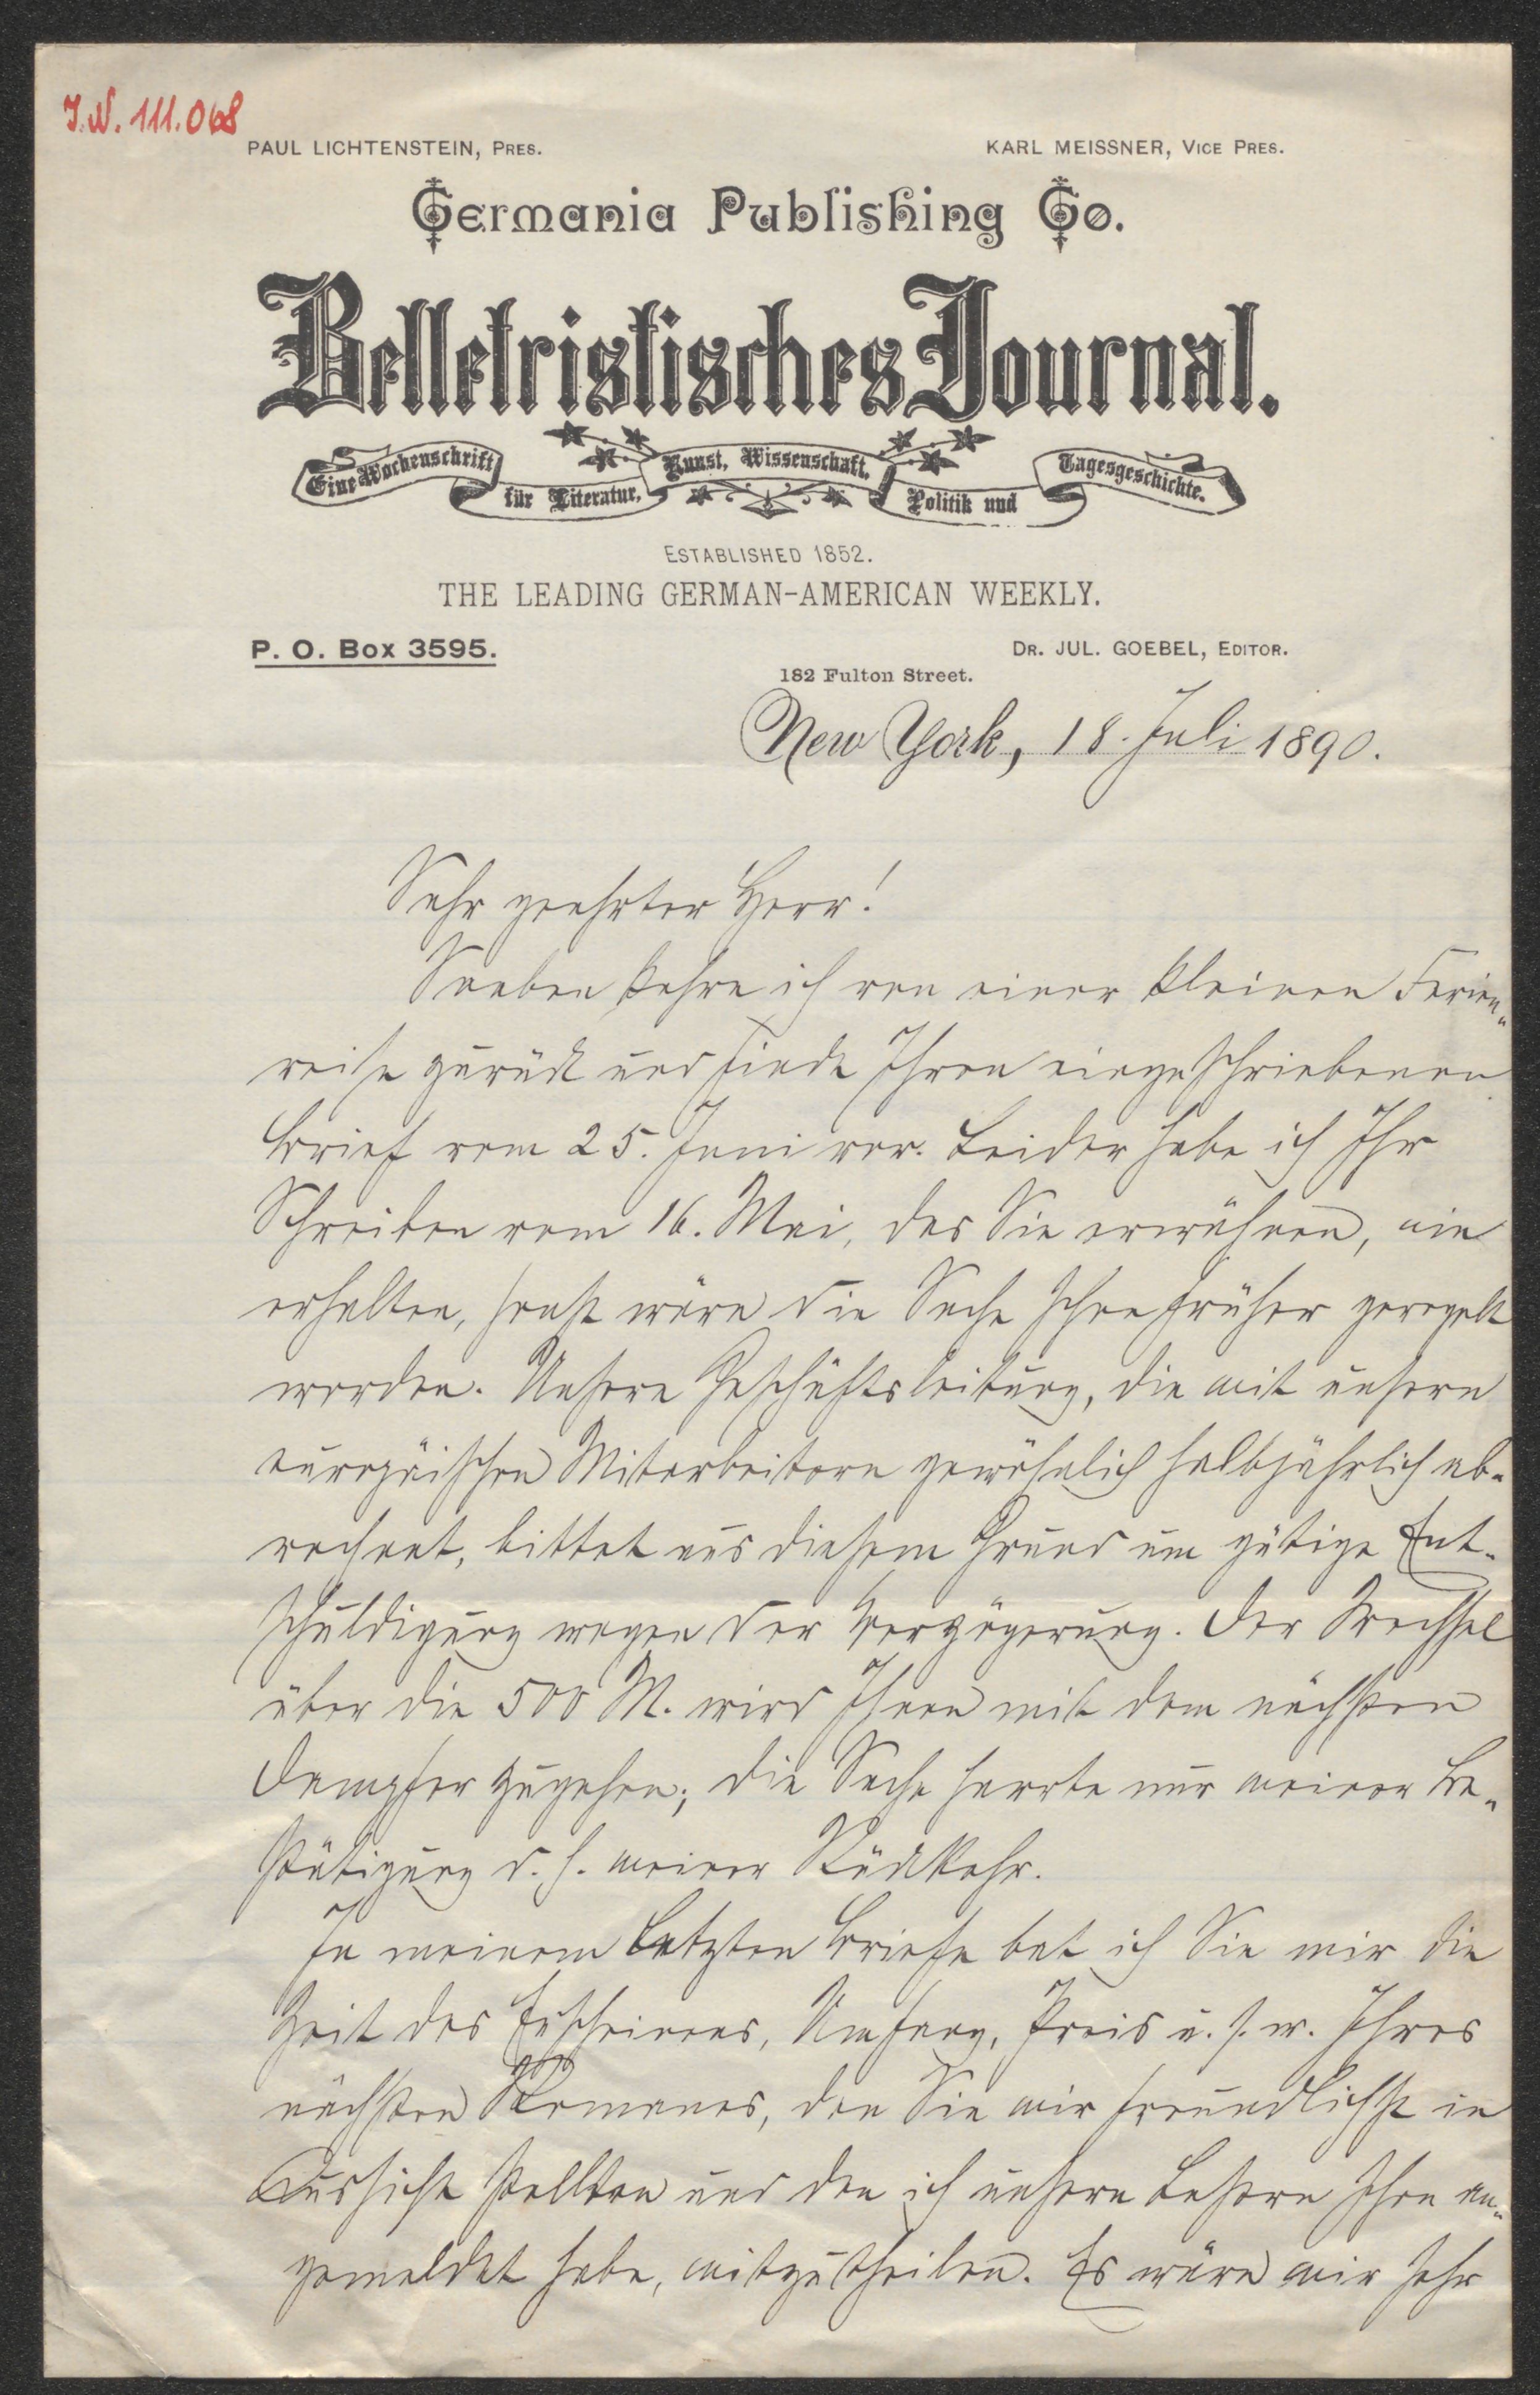 I.N. 111.068
PAUL LICHTENSTEIN, PRES.
KARL MEISSNER, VICE PRES.
Germania Publishing Co.
Belletristisches Journal.
Eine Wochenschrift für Literatur, Kunst, Wissenschaft, Politik und Tagesgeschichte.
ESTABLISHED 1852.
THE LEADING GERMAN-AMERICAN WEEKLY.
P. O. Box 3595.
DR. JUL. GOEBEL, EDITOR.
182 Fulton Street.
New York, 18. Juli 1890.
Sehr geehrter Herr!
Soeben kehre ich von einer kleinen Ferien-
reise zurück und finde Ihren eingeschriebenen
Brief vom 25. Juni vor. Leider habe ich Ihr
Schreiben vom 16. Mai, das Sie erwähnen, nie
erhalten, sonst wäre die Sache schon früher geregelt
worden. Unsere Geschäftsleitung, die mit unsern
europäischen Mitarbeitern gewöhnlich halbjährlich ab-
rechnet, bittet aus diesem Grund um gütige Ent-
schuldigung wegen der Verzögerung. Der Wechsel
über die 500 M. wird Ihnen mit dem nächsten
Dampfer zugehen; die Sache harrte nur meiner Be-
stätigung d. h. meiner Rückkehr.
In meinem letzten Briefe bat ich Sie mir die
Zeit des Erscheinens, Umfang, Preis u. s. w. Ihres
nächsten Romanes, den Sie mir freundlichst in
Aussicht stellten und den ich unsern Lesern schon an-
gemeldet habe, mitzutheilen. Es wäre mir sehr